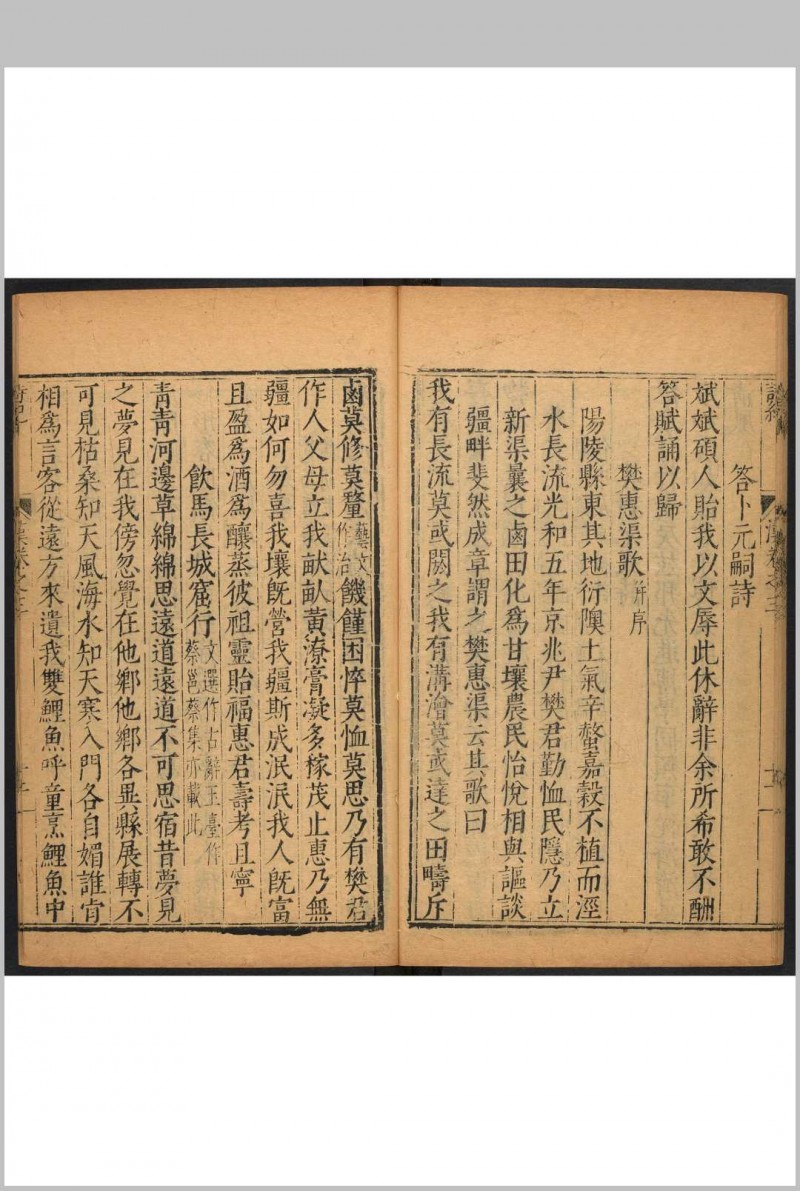 詩紀
漢卷之三
十二
答卜元嗣詩
斌斌碩人貽我以文辱此休辭非余所希敢不酬
答賦誦以歸
樊惠渠歌并序
陽陵縣東其地衍隩土氣辛螫嘉穀不植而涇
水長流光和五年京兆尹樊君勤恤民隱乃立
新渠曩之鹵田化爲甘壤農民怡悅相與謳談
疆畔斐然成章謂之樊惠渠云其歌曰
我有長流莫或閼之我有溝澮莫或達之田疇斥
鹵莫修莫釐藝文作治饑饉困悴莫恤莫思乃有樊君
作人父母立我畎畝黃潦膏凝多稼茂止惠乃無
疆如何勿喜我壤既營我疆斯成泯泯我人既富
且盈爲酒爲釀蒸彼祖靈貽福惠君壽考且寧
飲馬長城窟行文選作古辭玉臺作蔡邕蔡集亦載此
青青河邊草綿綿思遠道遠道不可思宿昔夢見
之夢見在我傍忽覺在他鄉他鄉各異縣展轉不
可見枯桑知天風海水知天寒入門各自媚誰肯
相爲言客從遠方來遺我雙鯉魚呼童烹鯉魚中